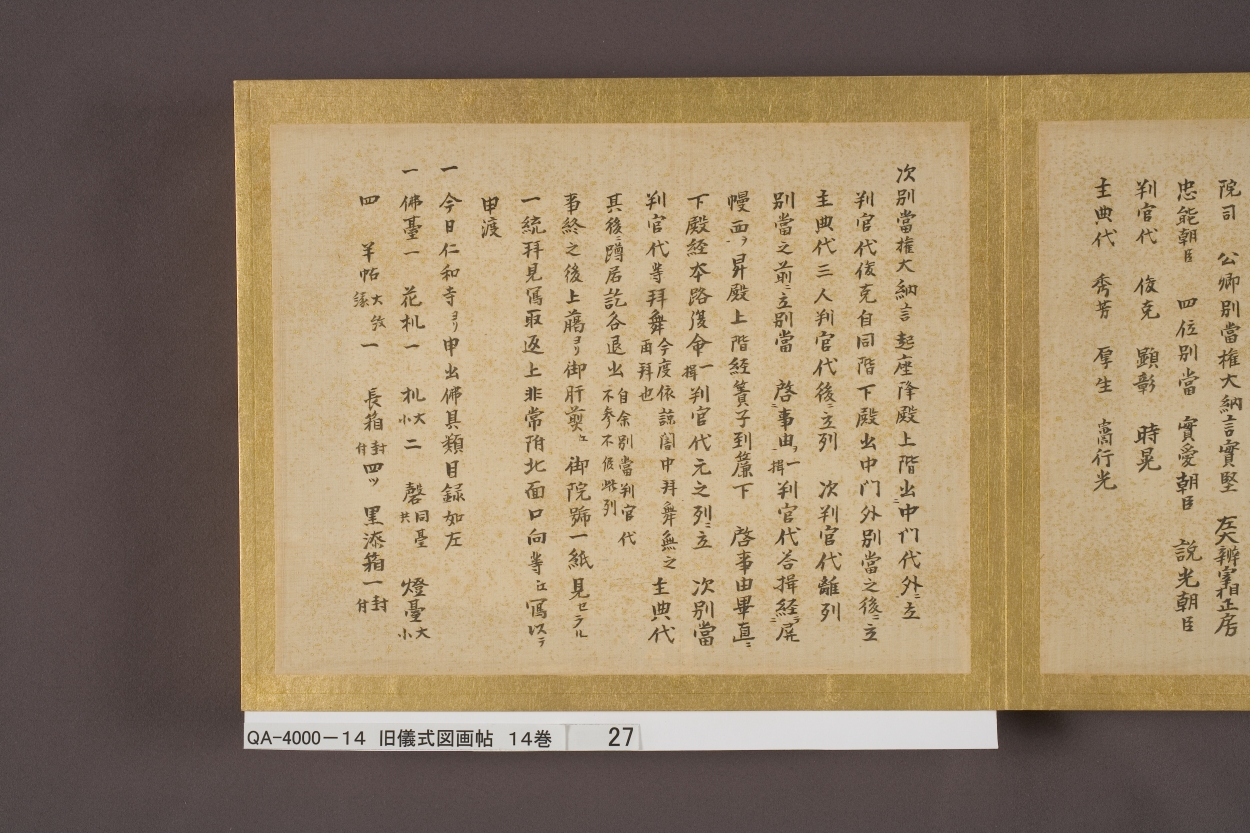 院司　公卿別當權大納言實堅　左大辨宰相正房
忠能朝臣　四位別當　實愛朝臣　説光朝臣
判官代　俊克　顯彰　時晃
主典代　秀芳　厚生　嵩行光
次別當權大納言起座降殿上階出中門代外ニ立
判官代俊克自同階下殿出中門外別當之後ニ立
主典代三人判官代後ニ立列　次判官代離列
別當之前ニ立別當ニ啓事由ヲ一揖判官代答揖經ラ屏
幔面ヲ昇殿上階經簀子到簾下　啓事由畢直ニ
下殿經本路復命一揖判官代元之列ニ立　次別當
判官代等拜舞今度依諒闇中拜舞無之再拜也　主典代
其後ニ蹲居訖各退出自余別當判官代不參不後此列
事終之後上﨟ヨリ御肝煎江御院號一紙見セラル
一統拜見寫取返上非常附北面口向等江寫以テ
申渡
一　今日仁和寺ヨリ申出佛具類目録如左
一　佛臺一　花机一　机大小二　磬同臺共　燈臺大小
四　半帖大文縁一　長箱封付四ツ　黒漆箱一封付
QA-4000-14　旧儀式図画帖　14巻　27